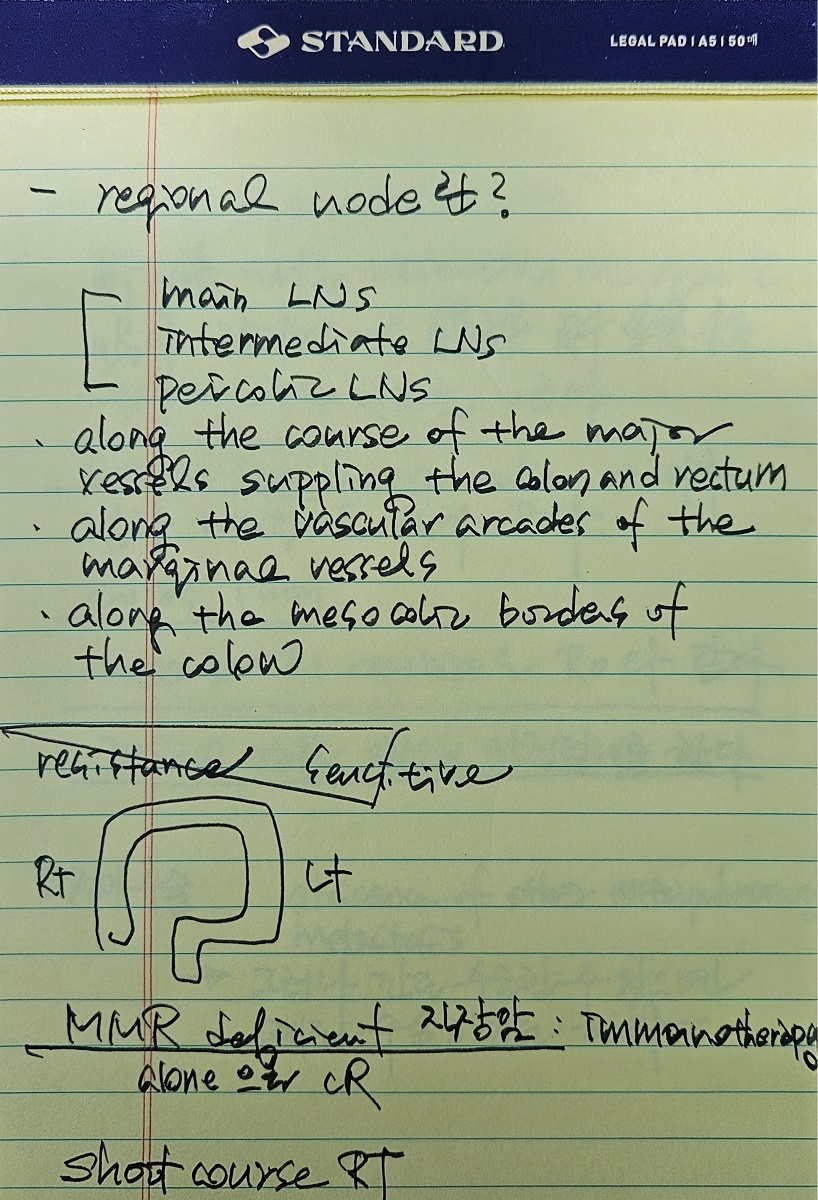 STANDARD
LEGAL PAD | A5 | 50매
- regional node란?
main LNs
intermediate LNs
pericolic LNs
· along the course of the major
vessels suppling the colon and rectum
· along the vascular arcades of the
marginal vessels
· along the mesocolic borders of
the colon
resistance sensitive
Rt Lt
MMR deficient 직장암 : Immunotherapy
alone 으로 cR
short course RT